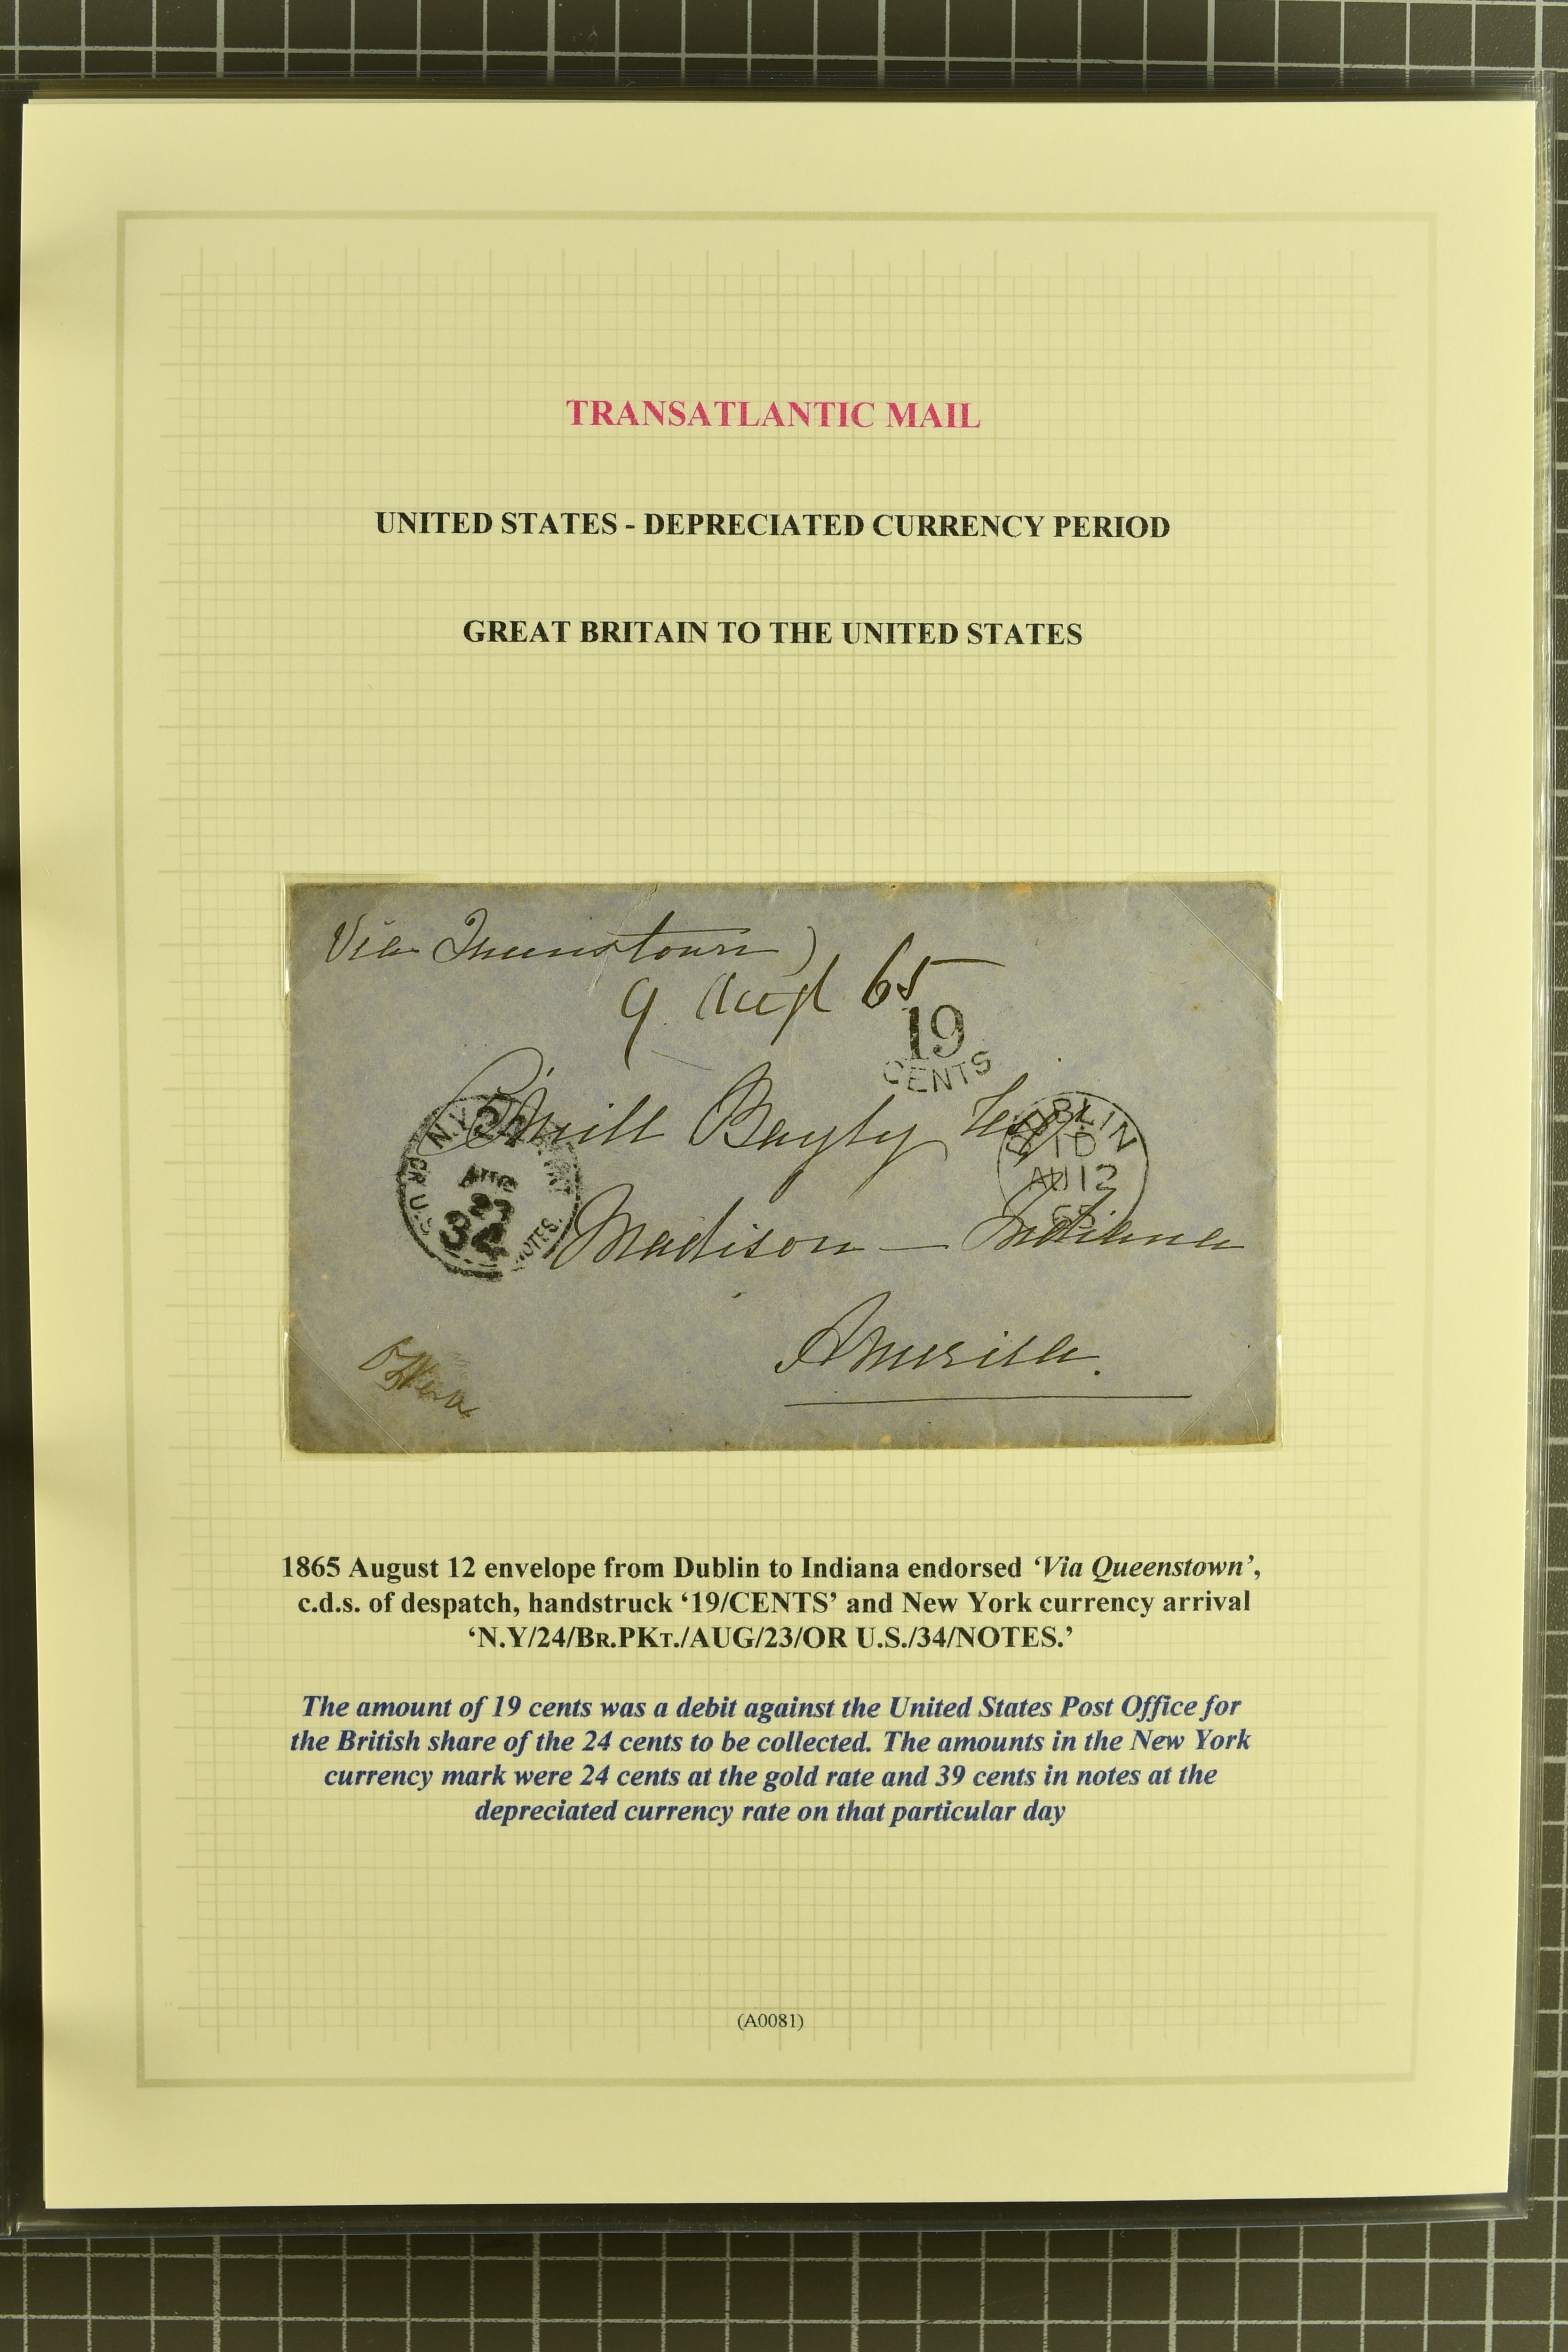 TRANSATLANTIC MAIL
UNITED STATES - DEPRECIATED CURRENCY PERIOD
GREAT BRITAIN TO THE UNITED STATES
Via Queenstown
9 Augt 65
19
CENTS
O'Neill Bayly Esqr
DUBLIN
1D
AU 12
65
N.Y. 24
AUG
23
OR U.S. 34 NOTES.
Madison — Indiana
America.
1865 August 12 envelope from Dublin to Indiana endorsed ‘Via Queenstown’,
c.d.s. of despatch, handstruck ‘19/CENTS’ and New York currency arrival
‘N.Y/24/BR.PKT./AUG/23/OR U.S./34/NOTES.’
The amount of 19 cents was a debit against the United States Post Office for
the British share of the 24 cents to be collected. The amounts in the New York
currency mark were 24 cents at the gold rate and 39 cents in notes at the
depreciated currency rate on that particular day
(A0081)